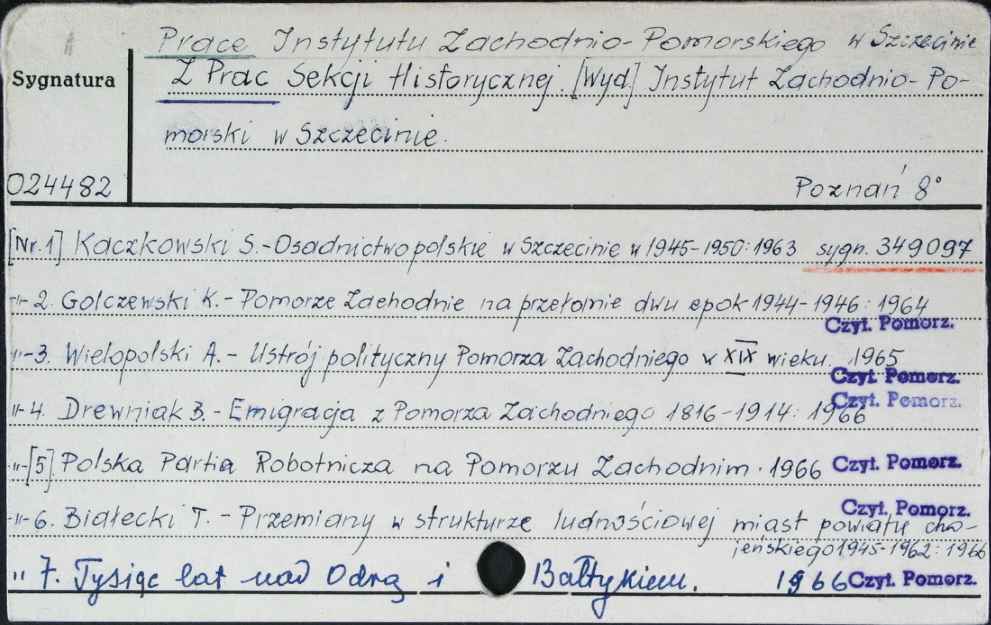 Prace Instytutu Zachodnio-Pomorskiego w Szczecinie
Sygnatura
Z Prac Sekcji Historycznej. [Wyd] Instytut Zachodnio-Po-
morski w Szczecinie.
024482
Poznań 8°
[Nr. 1] Kaczkowski S.- Osadnictwo polskie w Szczecinie w 1945-1950: 1963 sygn. 349097
-"- 2. Golczewski K.- Pomorze Zachodnie na przełomie dwu epok 1944-1946: 1964
Czyt. Pomorz.
-"- 3. Wielopolski A.- Ustrój polityczny Pomorza Zachodniego w XIX wieku. 1965
Czyt. Pomorz.
Czyt. Pomorz.
-"- 4. Drewniak B.- Emigracja z Pomorza Zachodniego 1816-1914: 1966
-"- [5] Polska Partia Robotnicza na Pomorzu Zachodnim. 1966 Czyt. Pomorz.
Czyt. Pomorz.
-"- 6. Białecki T.- Przemiany w strukturze ludnościowej miast powiatu cho-
jeńskiego 1945-1962: 1966
" 7. Tysiąc lat nad Odrą i Bałtykiem. 1966 Czyt. Pomorz.